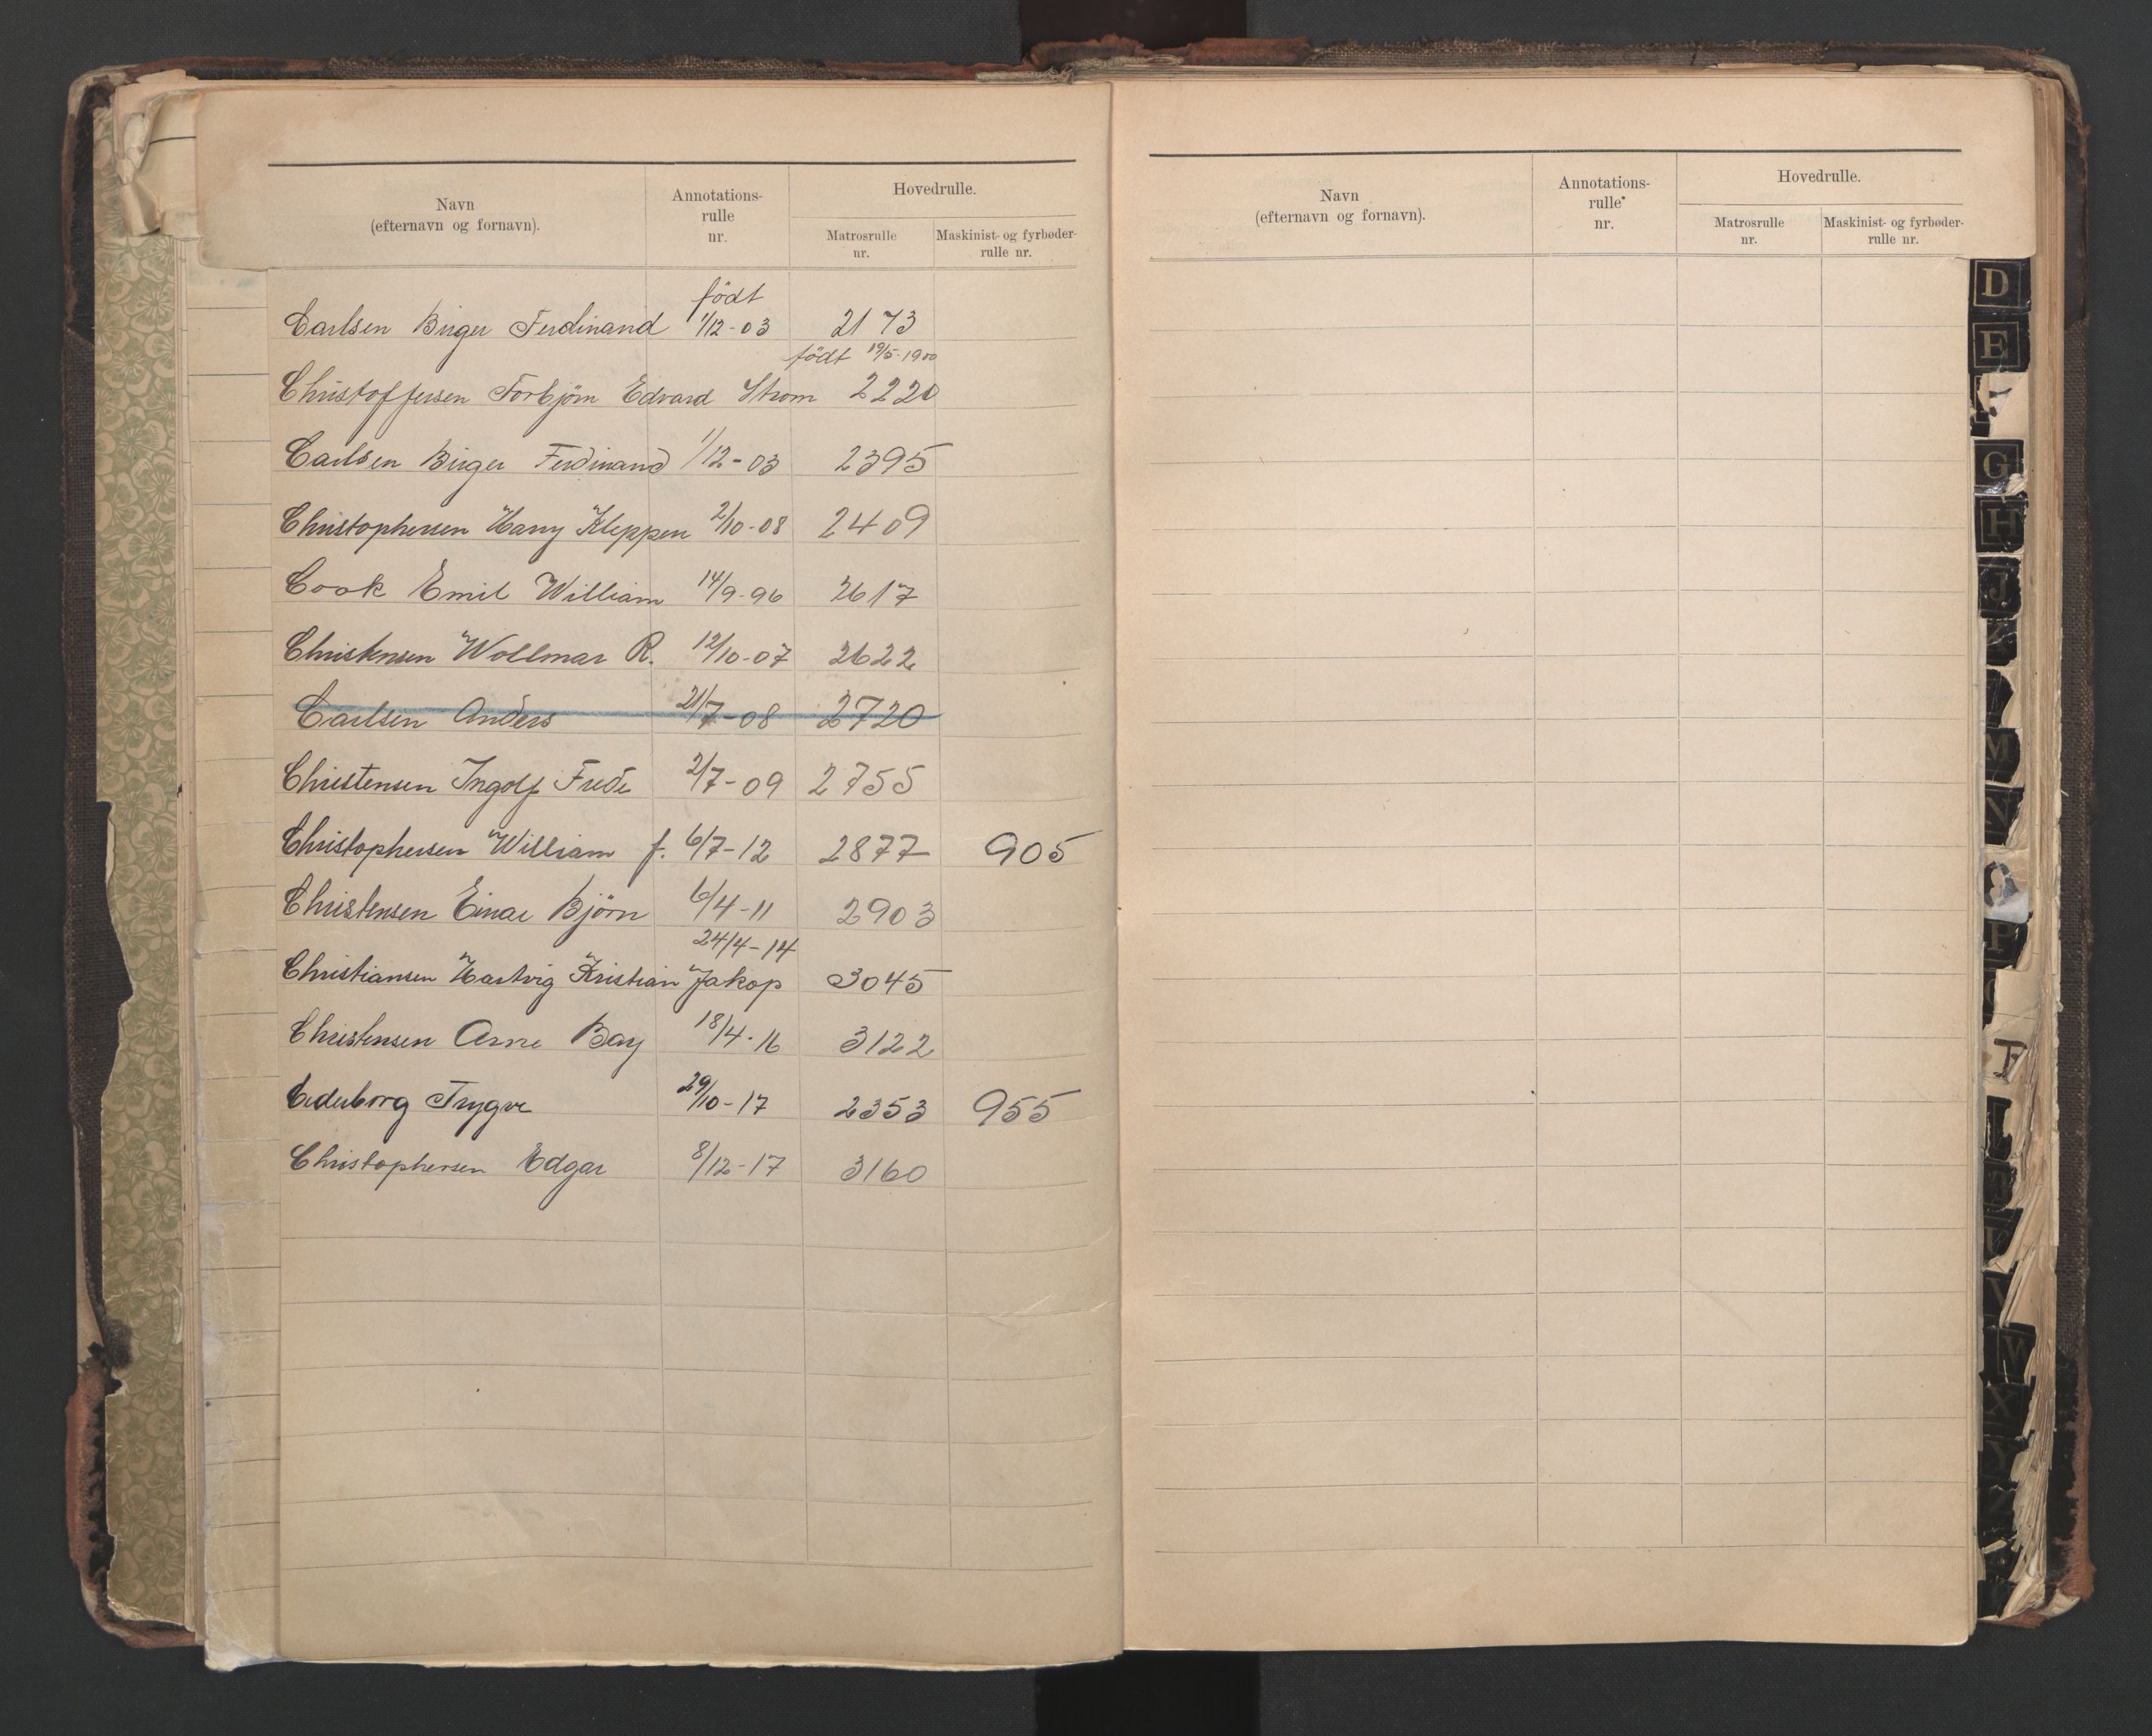 Navn
(efternavn og fornavn).
Annotations-
rulle
nr.
Hovedrulle.
Matrosrulle
nr.
Maskinist- og fyrbøder-
rulle nr.
født
Carlsen Birger Ferdinand 1/12-03 2173
født 19/5-1900
Christoffersen Torbjörn Edvard Strom 2220
Carlsen Birger Ferdinand 1/12-03 2395
Christophersen Harry Kleppen 2/10-08 2409
Cook Emil William 14/9-96 2617
Christensen Wollmar R. 12/10-07 2622
Carlsen Anders 21/7-08 2720
Christensen Ingolf Frede 2/7-09 2755
Christophersen William f. 6/7-12 2877 905
Christensen Einar Björn 6/4-11 2903
24/4-14
Christiansen Hartvig Kristian Jakop 3045
Christensen Arne Bay 18/4-16 3122
Cederborg Trygve 29/10-17 2353 955
Christophersen Edgar 8/12-17 3160
Navn
(efternavn og fornavn).
Annotations-
rulle
nr.
Hovedrulle.
Matrosrulle
nr.
Maskinist- og fyrbøder-
rulle nr.
D
E
G
H
J
M
N
P
T
V
W
X
Y